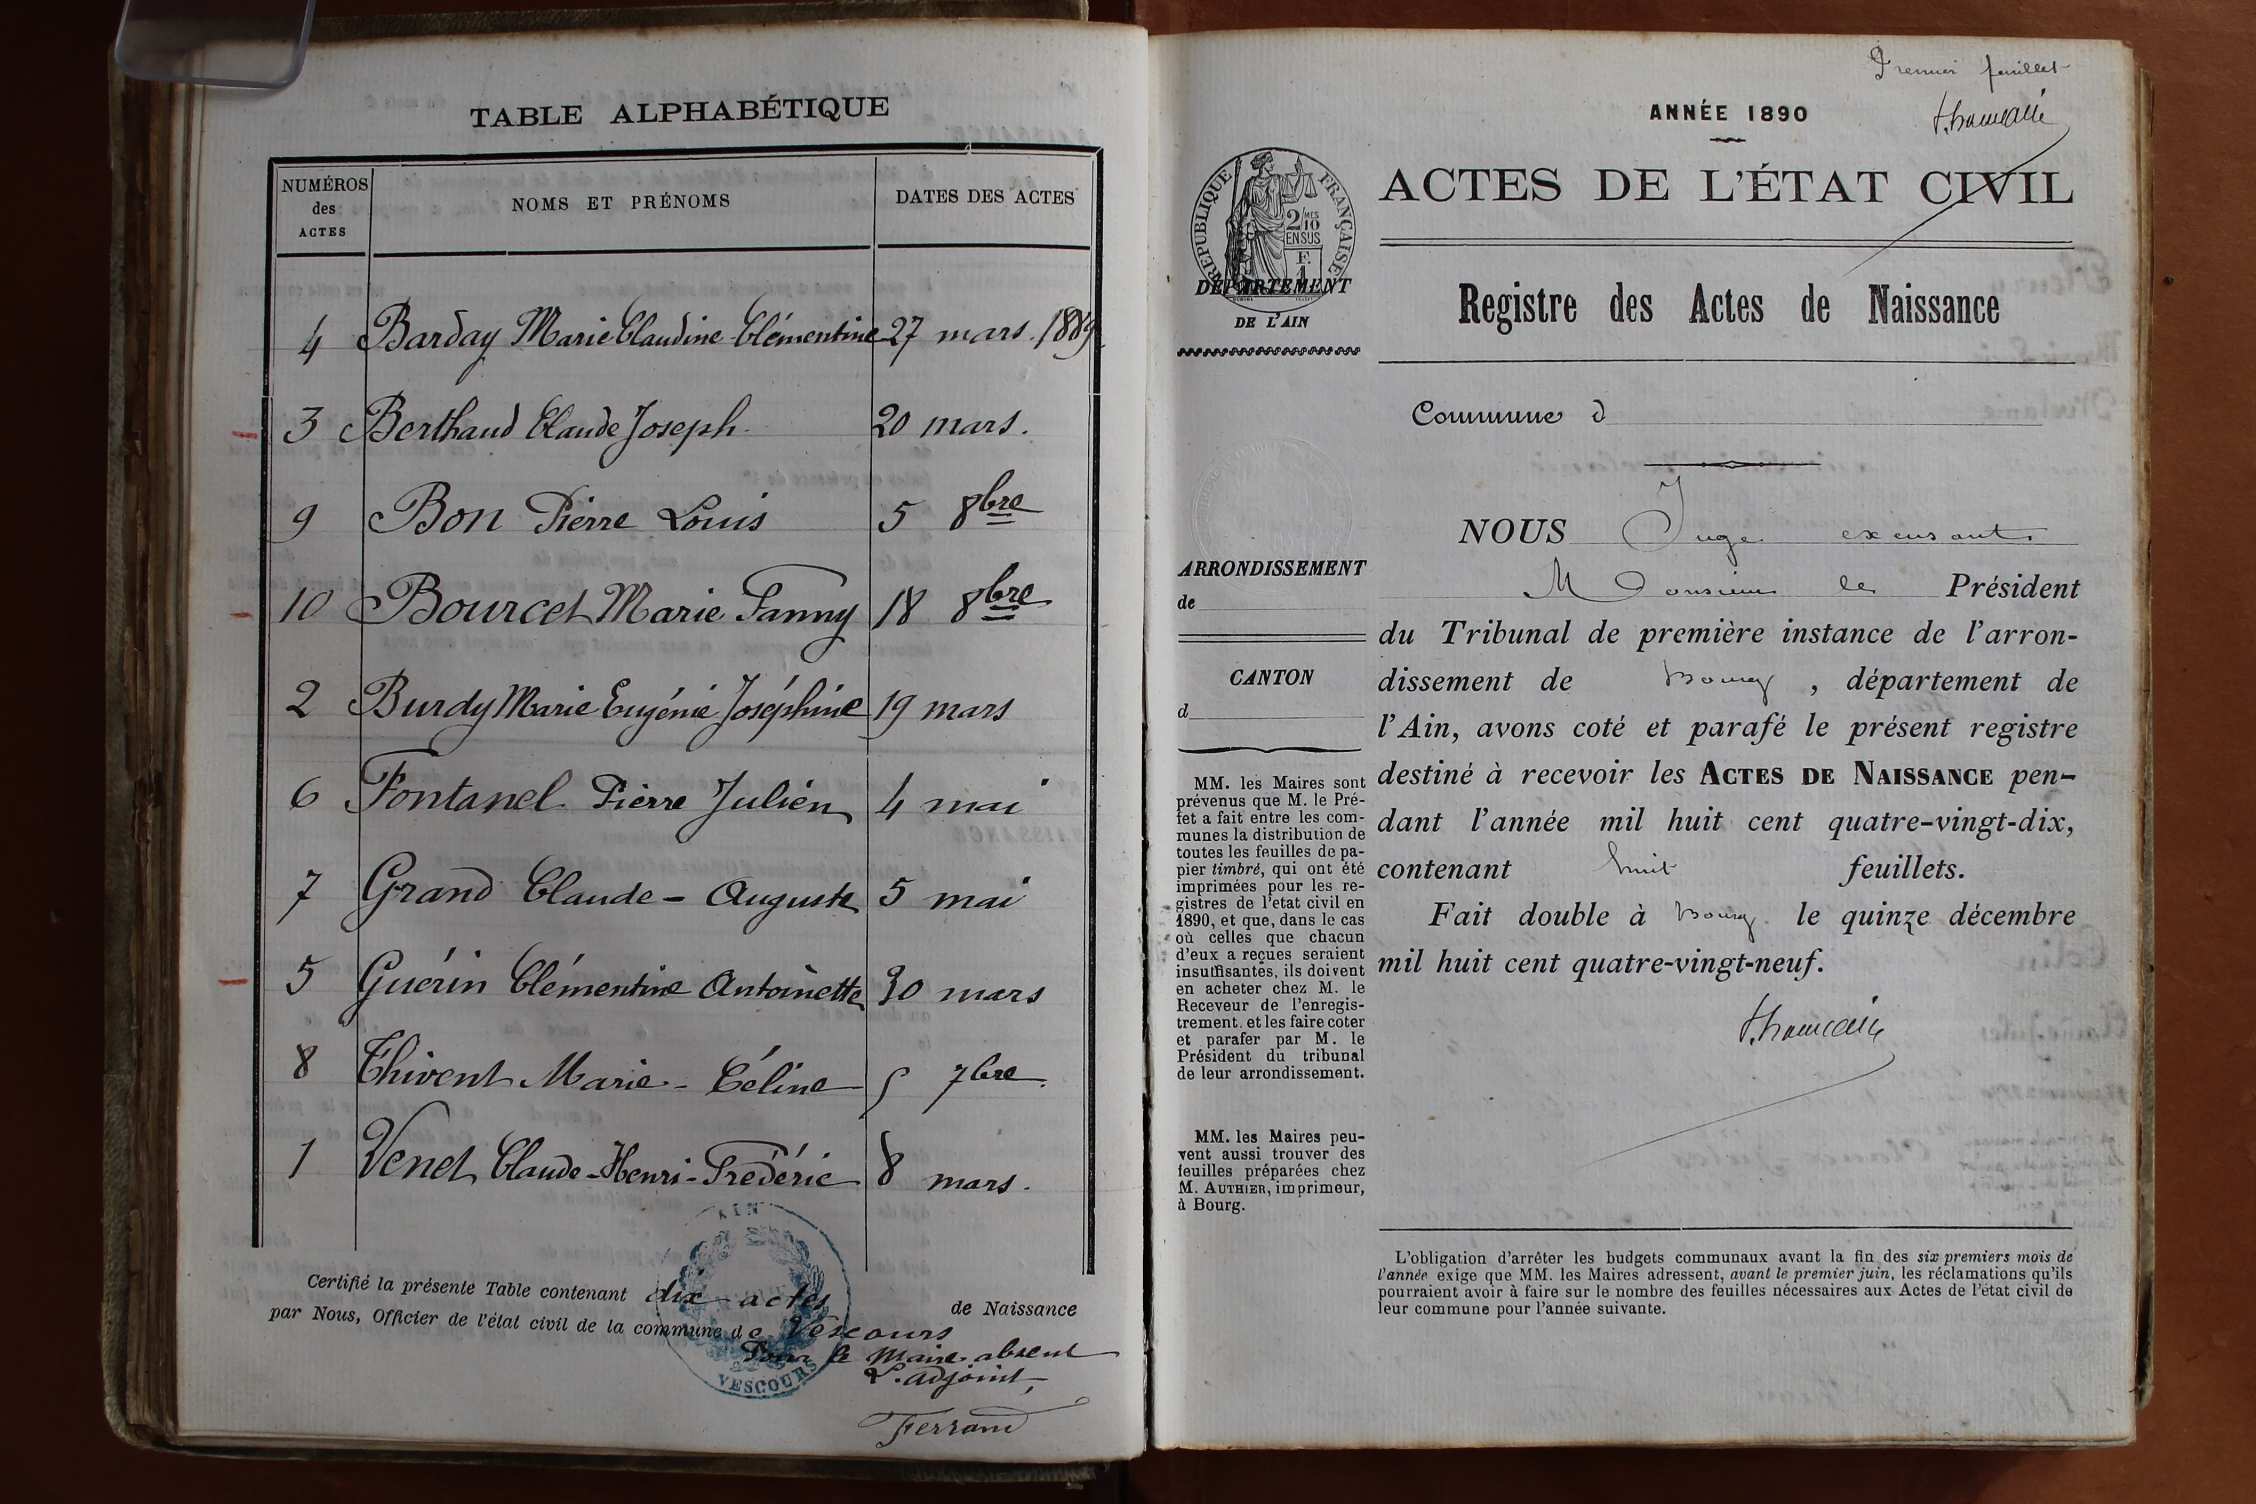 TABLE ALPHABÉTIQUE
NUMÉROS des ACTES NOMS ET PRÉNOMS DATES DES ACTES
4 Barday Marie Claudine Clémentine 27 mars. 1889.
3 Berthaud Claude Joseph. 20 mars.
9 Bon Pierre Louis 5 8bre
10 Bourcet Marie Fanny 18 8bre
2 Burdy Marie Eugénie Joséphine 19 mars
6 Fontanel Pierre Julien 4 mai
7 Grand Claude - Auguste 5 mai
5 Guérin Clémentine Antoinette 30 mars
8 Thivent Marie - Céline 5 7bre.
1 Venet Claude - Henri - Frédéric 8 mars.
Certifié la présente Table contenant dix actes de Naissance
par Nous, Officier de l'état civil de la commune de Vescours
Pour le Maire absent
L'adjoint,
Ferrand
AIN
VESCOURS
Premier feuillet
ANNÉE 1890
ACTES DE L'ÉTAT CIVIL
RÉPUBLIQUE FRANÇAISE
2/10
MES
EN SUS
F.
1
DÉPARTEMENT
DE L'AIN
Registre des Actes de Naissance
Commune d
NOUS Juge
Monsieur le Président
du Tribunal de première instance de l'arron-
dissement de Bourg, département de
l'Ain, avons coté et parafé le présent registre
destiné à recevoir les ACTES DE NAISSANCE pen-
dant l'année mil huit cent quatre-vingt-dix,
contenant huit feuillets.
Fait double à Bourg le quinze décembre
mil huit cent quatre-vingt-neuf.
ARRONDISSEMENT
de
CANTON
d
MM. les Maires sont
prévenus que M. le Pré-
fet a fait entre les com-
munes la distribution de
toutes les feuilles de pa-
pier timbré, qui ont été
imprimées pour les re-
gistres de l'etat civil en
1890, et que, dans le cas
où celles que chacun
d'eux a reçues seraient
insuffisantes, ils doivent
en acheter chez M. le
Receveur de l'enregis-
trement. et les faire coter
et parafer par M. le
Président du tribunal
de leur arrondissement.
MM. les Maires peu-
vent aussi trouver des
feuilles préparées chez
M. AUTHIER, imprimeur,
à Bourg.
L'obligation d'arrêter les budgets communaux avant la fin des six premiers mois de
l'année exige que MM. les Maires adressent, avant le premier juin, les réclamations qu'ils
pourraient avoir à faire sur le nombre des feuilles nécessaires aux Actes de l'état civil de
leur commune pour l'année suivante.